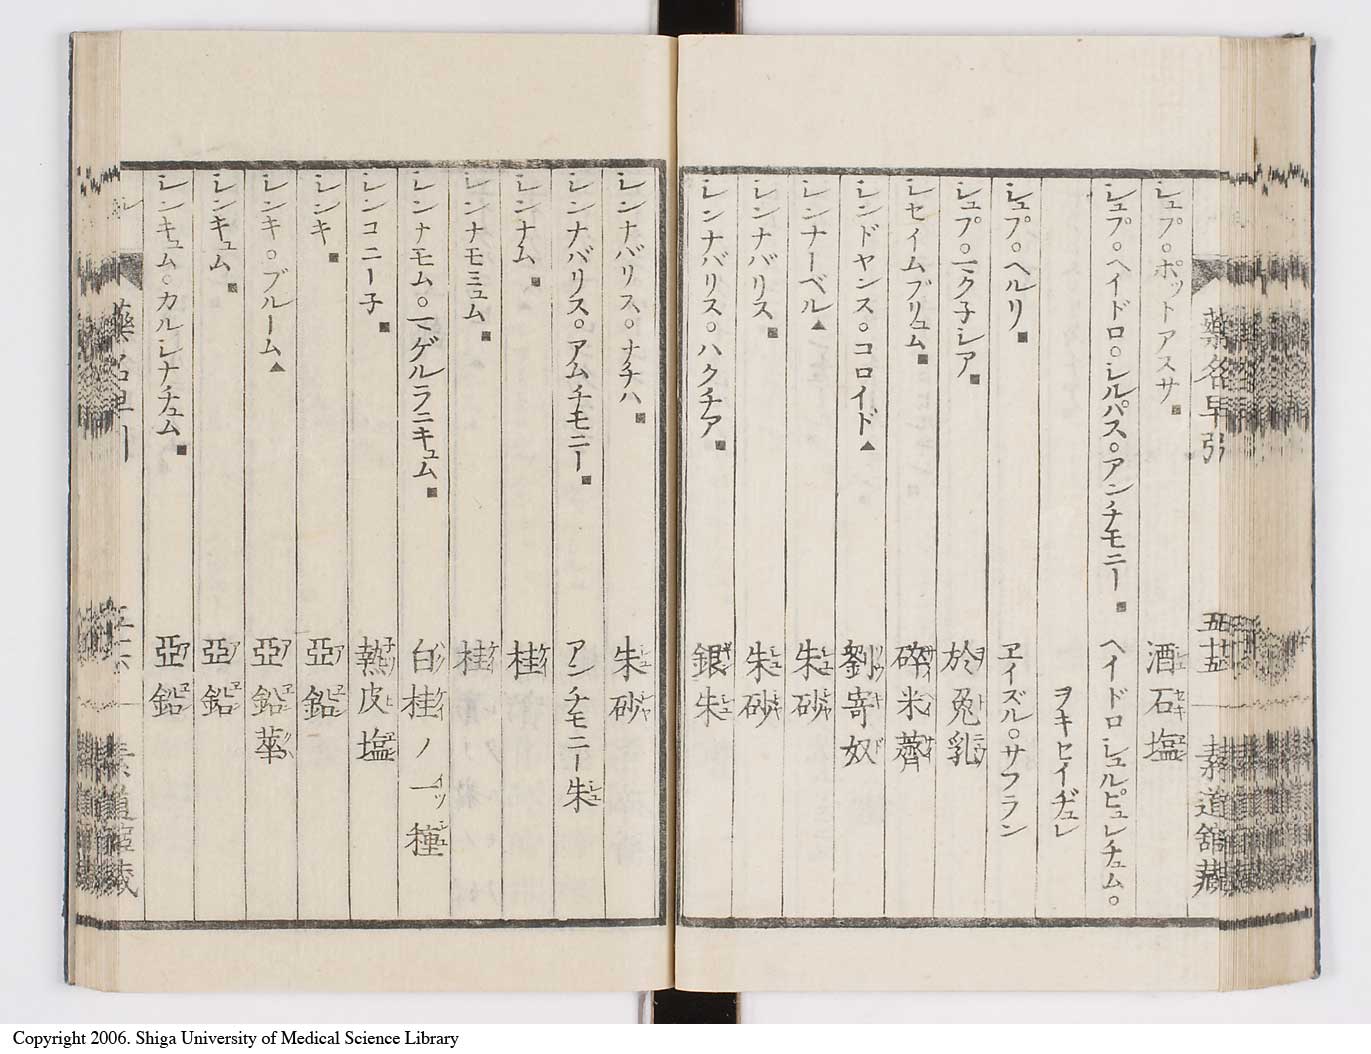 藥名早引 五十五 素道舘藏
シュプ。ポットアスサ■ 酒石塩
シュプ。ヘイドロ。シルパス。アンチモニー■ ヘイドロシュルピュレチュム。
ヲキセイヂュレ
シュプ。ヘルリ■ ヱイズル。サフラン
シュプ。一ク子シア■ 於兎乳
シセイムブリュム■ 碎米薺
シンドヤンス。コロイド▲ 劉寄奴
シンナーベル▲ 朱砂
シンナバリス■ 朱砂
シンナバリス。ハクチア■ 銀朱
シンナバリス。ナチハ■ 朱砂
シンナバリス。アムチモニー■ アンチモニー朱
シンナム■ 桂
シンナモミュム■ 桂
シンナモム。一ゲルラニキュム■ 白桂ノ一種
シンコニー子■ 熱皮塩
シンキ■ 亞鉛
シンキ。ブルーム▲ 亞鉛華
シンキュム■ 亞鉛
シンキュム。カルシナチュム■ 亞鉛
藥名早引 素道舘藏
Copyright 2006. Shiga University of Medical Science Library